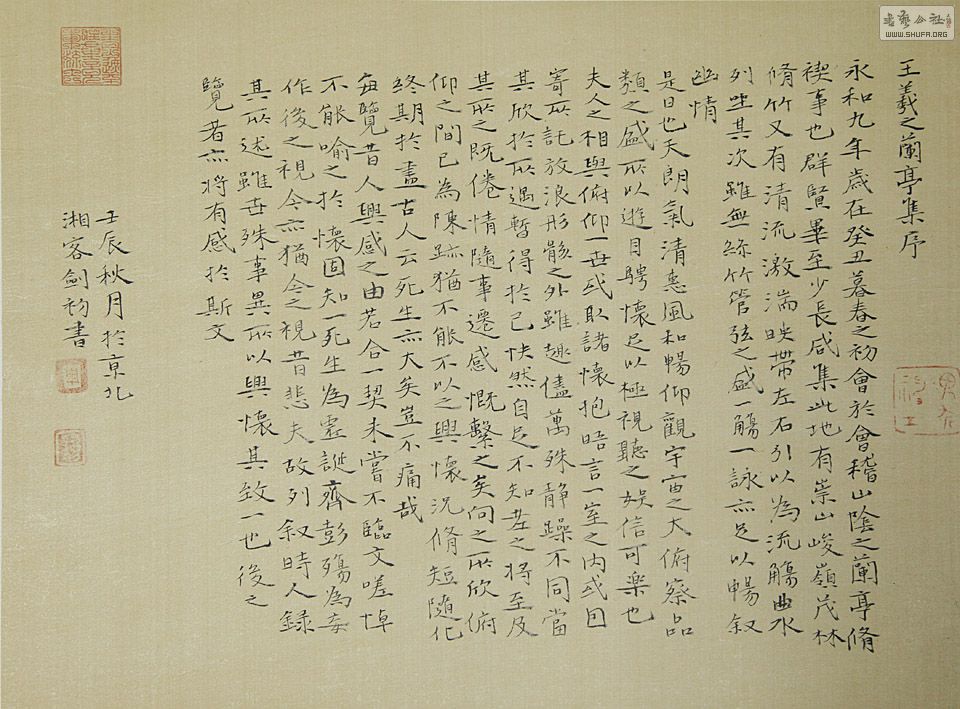 王羲之蘭亭集序
永和九年歲在癸丑暮春之初會於會稽山陰之蘭亭脩
禊事也群賢畢至少長咸集此地有崇山峻嶺茂林
脩竹又有清流激湍映帶左右引以為流觴曲水
列坐其次雖無絲竹管弦之盛一觴一詠亦足以暢叙
幽情
是日也天朗氣清惠風和暢仰觀宇宙之大俯察品
類之盛所以遊目騁懷足以極視聽之娛信可樂也
夫人之相與俯仰一世或取諸懷抱晤言一室之內或因
寄所託放浪形骸之外雖趣儘萬殊静躁不同當
其欣於所遇暫得於己快然自足不知老之將至及
其所之既倦情隨事遷感慨繫之矣向之所欣俯
仰之間已為陳跡猶不能不以之興懷況脩短隨化
終期於盡古人云死生亦大矣豈不痛哉
每覽昔人興感之由若合一契未嘗不臨文嗟悼
不能喻之於懷固知一死生為虛誕齊彭殤為妄
作後之視今亦猶今之視昔悲夫故列叙時人錄
其所述雖世殊事異所以興懷其致一也後之
覽者亦將有感於斯文
壬辰秋月於京北
湘客劍書
書藝公社
WWW.SHUFA.ORG